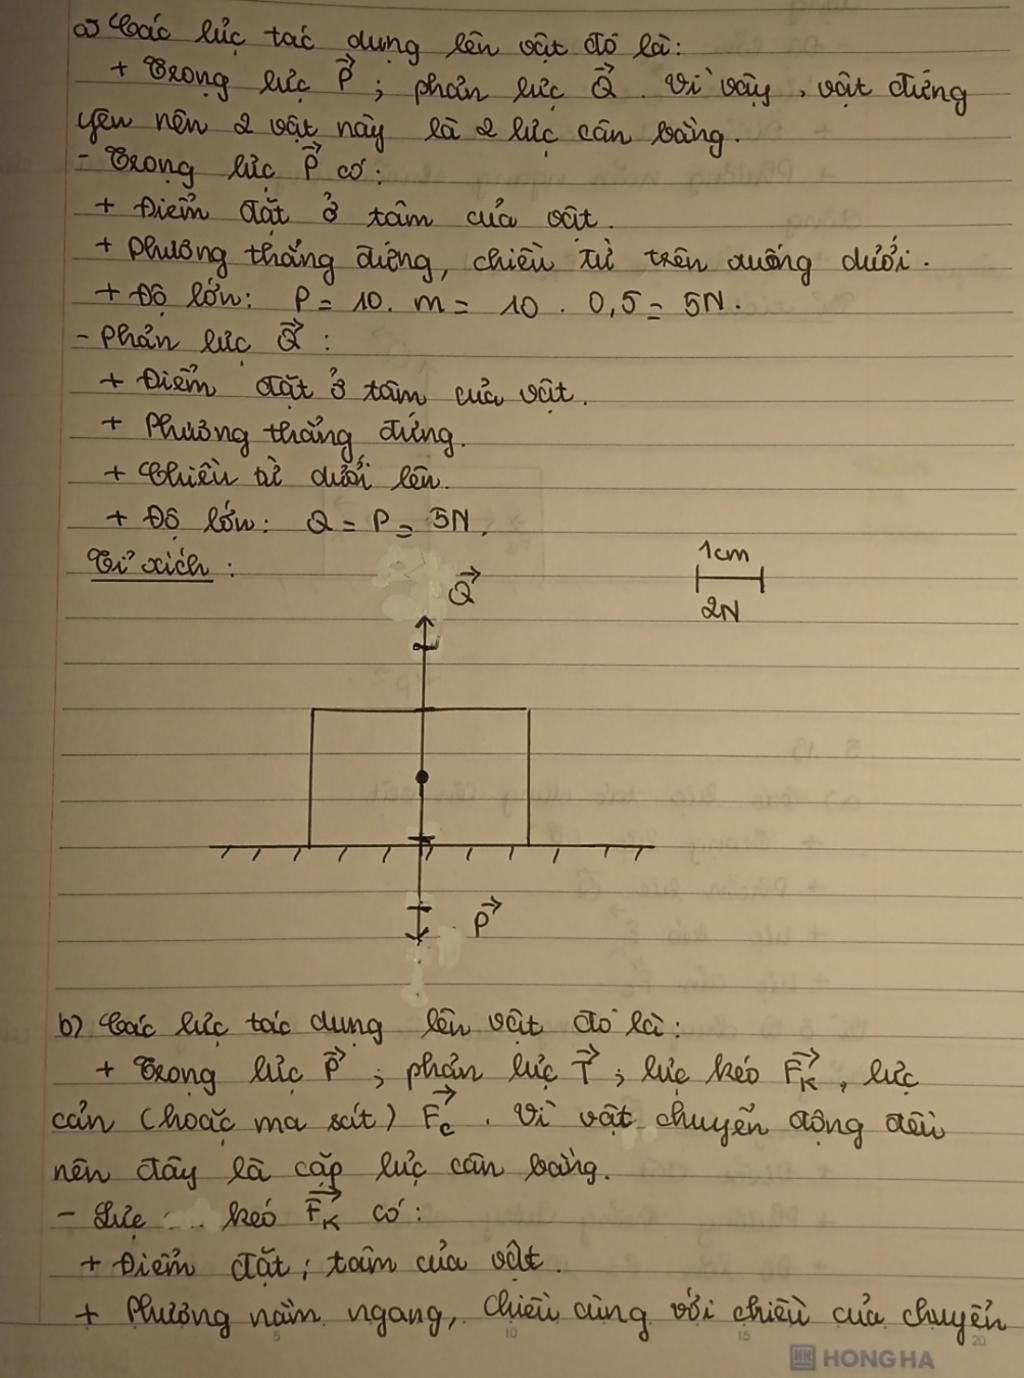 a) Các lực tác dụng lên vật đó là:
+ Trọng lực P⃗ ; phản lực Q⃗ . Vì vậy , vật đứng
yên nên 2 vật này là 2 lực cân bằng.
- Trọng lực P⃗ có:
+ Điểm đặt ở tâm của vật.
+ Phương thẳng đứng, chiều từ trên xuống dưới.
+ Độ lớn: P = 10. m = 10 . 0,5 = 5N.
- Phản lực Q⃗ :
+ Điểm đặt ở tâm của vật.
+ Phương thẳng đứng.
+ Chiều từ dưới lên.
+ Độ lớn: Q = P = 5N.
Tỉ xích :
1cm
2N
Q⃗
P⃗
b) Các lực tác dụng lên vật đó là:
+ Trọng lực P⃗ ; phản lực T⃗ ; lực kéo F⃗K , lực
cản (hoặc ma sát) F⃗c . Vì vật chuyển động đều
nên đây là cặp lực cân bằng.
- Lực kéo F⃗K có:
+ Điểm đặt : tâm của vật.
+ Phương nằm ngang, chiều cùng với chiều của chuyển
5 10 15 20
HONG HA